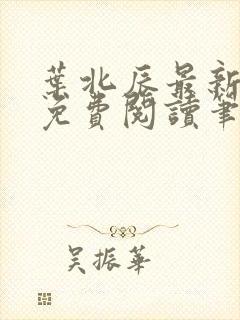 葉北辰最新
免費閱讀筆
吳振華